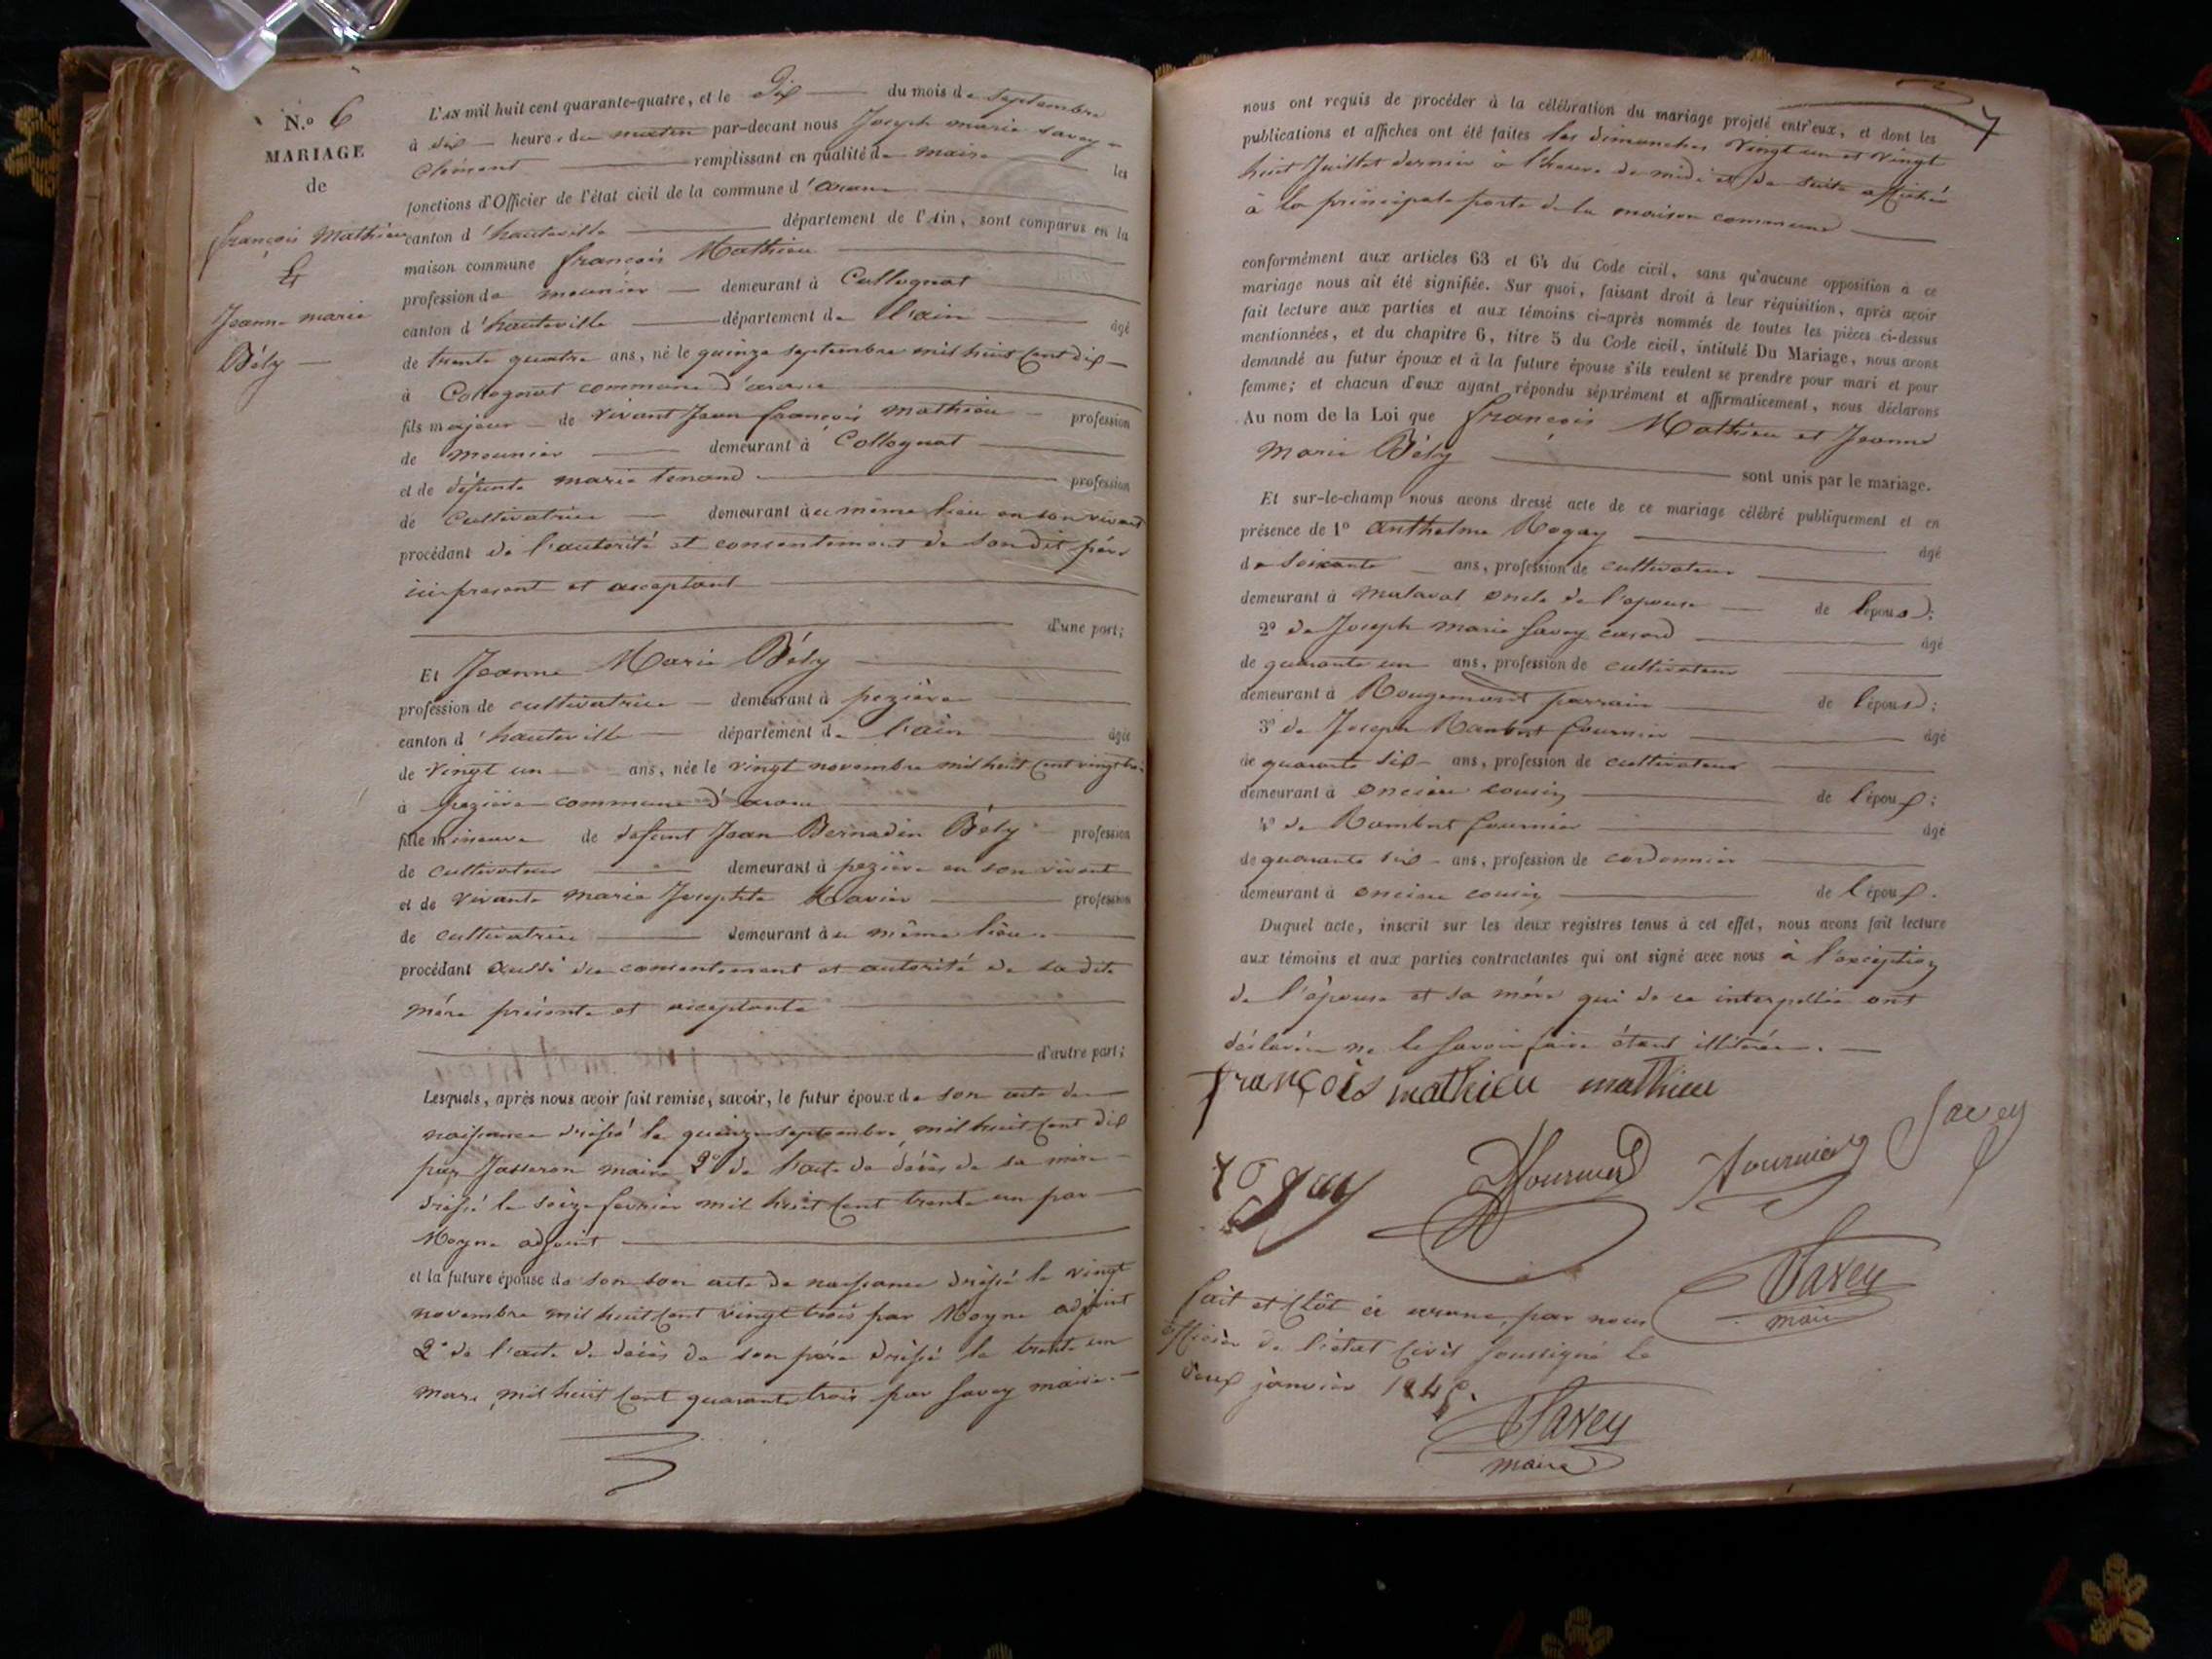 N.o 6
MARIAGE
de
françois Mathieu
&
Jeanne marie
Bély
L'AN mil huit cent quarante-quatre, et le Dix du mois de septembre
à dix heures du matin par-devant nous Joseph marie savey
Clément remplissant en qualité de maire les
fonctions d'Officier de l'état civil de la commune d'arane
canton d'hauteville département de l'Ain, sont comparus en la
maison commune françois Mathieu
profession de meunier demeurant à Collognat
canton d'hauteville département de l'ain âgé
de trente quatre ans, né le quinze septembre mil huit cent dix
à Collognat commune d'arane
fils majeur de vivant Jean françois mathieu profession
de meunier demeurant à Collognat
et de défunte marie tenand profession
de cultivatrice demeurant au même lieu en son vivant
procédant de l'autorité et consentement de son dit père
ici présent et acceptant
d'une part;
Et Jeanne Marie Bély
profession de cultivatrice demeurant à pezière
canton d'hauteville département de l'ain âgée
de vingt un ans, née le vingt novembre mil huit cent vingt trois
à pezière commune d'arane
fille mineure de défunt Jean Bernadin Bély profession
de cultivateur demeurant à pezière en son vivant
et de vivante marie Josephte Ravier profession
de cultivatrice demeurant au même lieu
procédant aussi du consentement et autorité de sa dite
mère présente et acceptante
d'autre part;
Lesquels, après nous avoir fait remise, savoir, le futur époux de son acte de
naissance dressé le quinze septembre mil huit cent dix
par Jasseron maire 2° de l'acte de décès de sa mère
dressé le seize fevrier mil huit cent trente un par
Moyne adjoint
et la future épouse de son son acte de naissance dressé le vingt
novembre mil huit cent vingt trois par Moyne adjoint
2° de l'acte de décès de son père dressé le trente un
mars mil huit cent quarante trois par savey maire.
7
nous ont requis de procéder à la célébration du mariage projeté entr'eux, et dont les
publications et affiches ont été faites les dimanches vingt un et vingt
huit Juillet dernier à l'heure de midi et de suite affichés
à la principale porte de la maison commune
conformément aux articles 63 et 64 du Code civil, sans qu'aucune opposition à ce
mariage nous ait été signifiée. Sur quoi, faisant droit à leur réquisition, après avoir
fait lecture aux parties et aux témoins ci-après nommés de toutes les pièces ci-dessus
mentionnées, et du chapitre 6, titre 5 du Code civil, intitulé Du Mariage, nous avons
demandé au futur époux et à la future épouse s'ils veulent se prendre pour mari et pour
femme; et chacun d'eux ayant répondu séparément et affirmativement, nous déclarons
Au nom de la Loi que françois Mathieu et Jeanne
Marie Bély sont unis par le mariage.
Et sur-le-champ nous avons dressé acte de ce mariage célébré publiquement et en
présence de 1° anthelme Rogay âgé
de soixante ans, profession de cultivateur
demeurant à malaval oncle de l'epouse de l'épouse;
2° de Joseph marie savey âgé
de quarante un ans, profession de cultivateur
demeurant à Rougemont parrain de l'épouse;
3° de Joseph Rambert fournier âgé
de quarante six ans, profession de cultivateur
demeurant à oncieu cousin de l'époux;
4° de Rambert fournier âgé
de quarante six ans, profession de cordonnier
demeurant à oncieu cousin de l'époux.
Duquel acte, inscrit sur les deux registres tenus à cet effet, nous avons fait lecture
aux témoins et aux parties contractantes qui ont signé avec nous à l'exception
de l'épouse et sa mère qui de ce interpellée ont
déclarée ne le savoir faire étant illitérée.
françois mathieu mathieu
rogay fournier fournier Savey
Savey
maire
fait et clôt à arane, par nous
officier de l'état civil soussigné le
deux janvier 1845.
Savey
maire